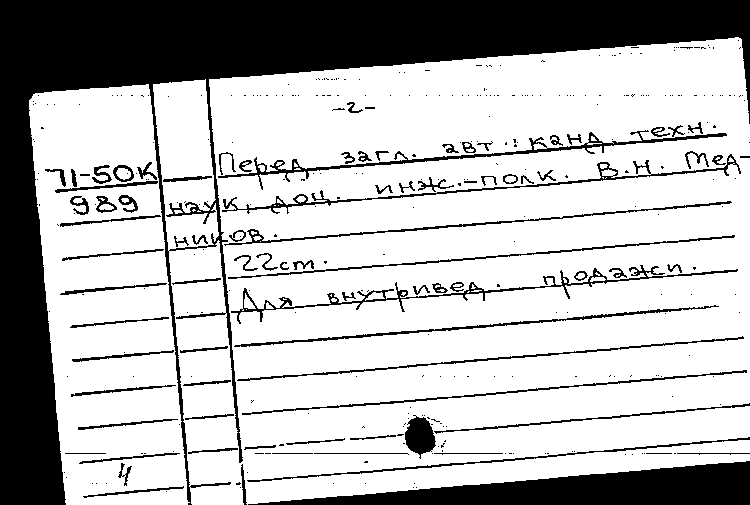 -2-
71-50к Перед загл. авт.: канд. техн.
989 наук, доц. инж.-полк. В.Н. Мед-
ников.
22 ст.
Для внутривед. продажи.
4